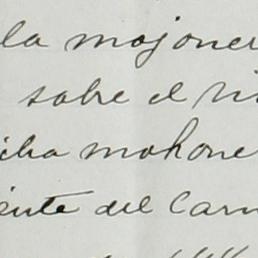 la mojoner
sobre el
cha mohone
ente del Carm